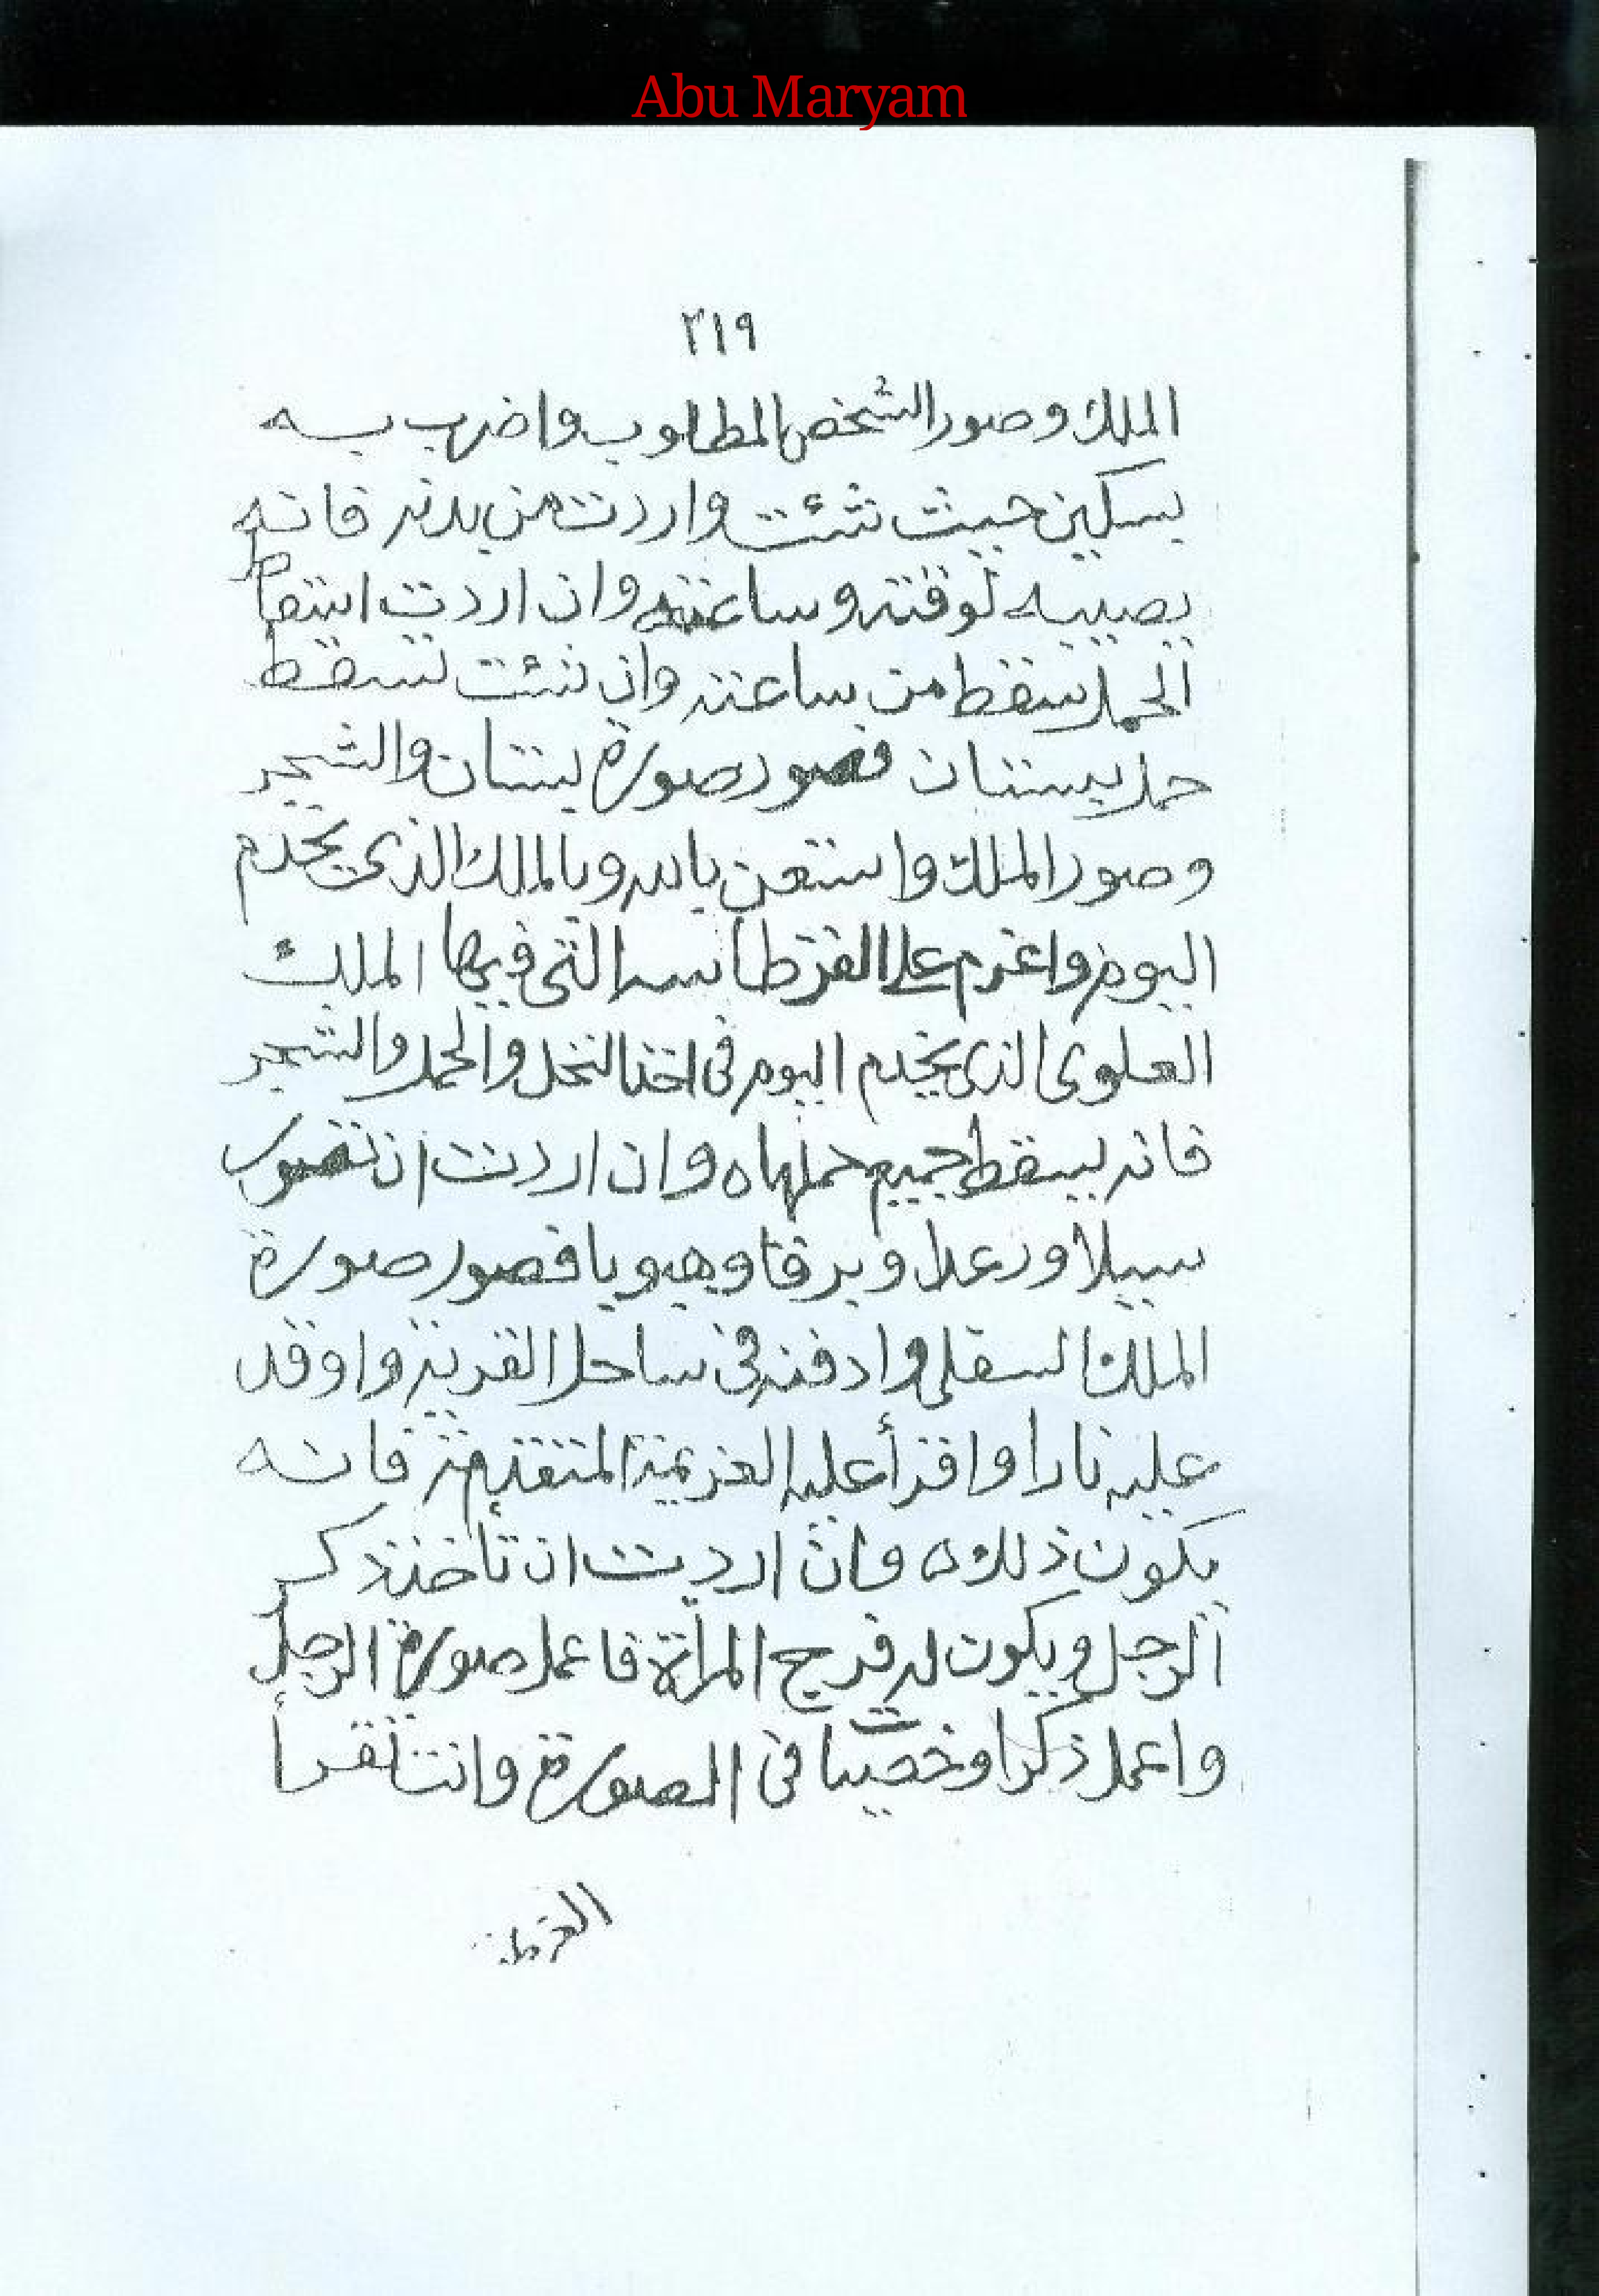 Abu Maryam
٢١٩
الملك وصور الشخص المطلوب واضرب بسه
بسكين حيث شئت واردت من بدنه فانه
يصيبه لوقته وساعته وان اردت اسقاط
الحمل يسقط من ساعته وان شئت تسقط
حمل بستان فصور صورة بستان والشجر
وصور الملك واستعن بالله وبالملك الذي يخدم
اليوم واعزم علا القرطاسه التي فيها الملك
العلوي الذي يخدم اليوم في النخل والحمل والشجر
فانه يسقط جميع حملها ه وان اردت ان تصور
سيلا ورعدا وبرقا وهبوبا فصور صورة
الملك السفلي وادفنه في ساحل القرية واوقد
عليه نارا واقرأ عليه العزيمة المتقدمة فانه
يكون ذلك ه وان اردت ان تأخذ ذكر
الرجل ويكون له فرج المرأة فاعمل صورة الرجل
واعمل ذكرا وخصيتا في الصورة وانت تقرأ